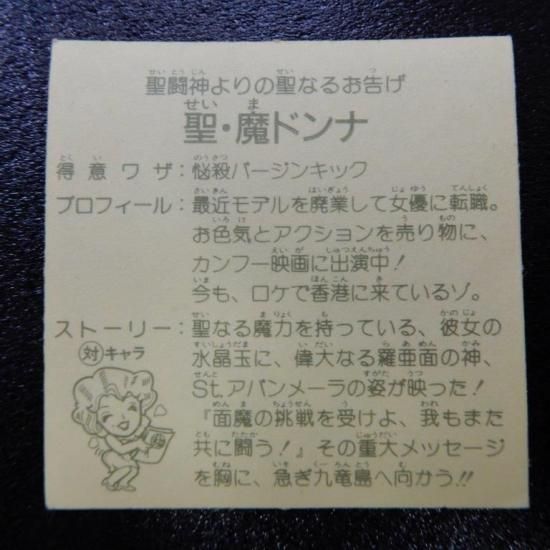 聖闘神よりの聖なるお告げ
聖・魔ドンナ
得意ワザ：悩殺バージンキック
プロフィール：最近モデルを廃業して女優に転職。
お色気とアクションを売り物に、
カンフー映画に出演中！
今も、ロケで香港に来ているゾ。
ストーリー：聖なる魔力を持っている、彼女の
対キャラ
水晶玉に、偉大なる羅亜面の神、
St.アバンメーラの姿が映った！
『面魔の挑戦を受けよ、我もまた
共に闘う！』その重大メッセージ
を胸に、急ぎ九竜島へ向かう!!